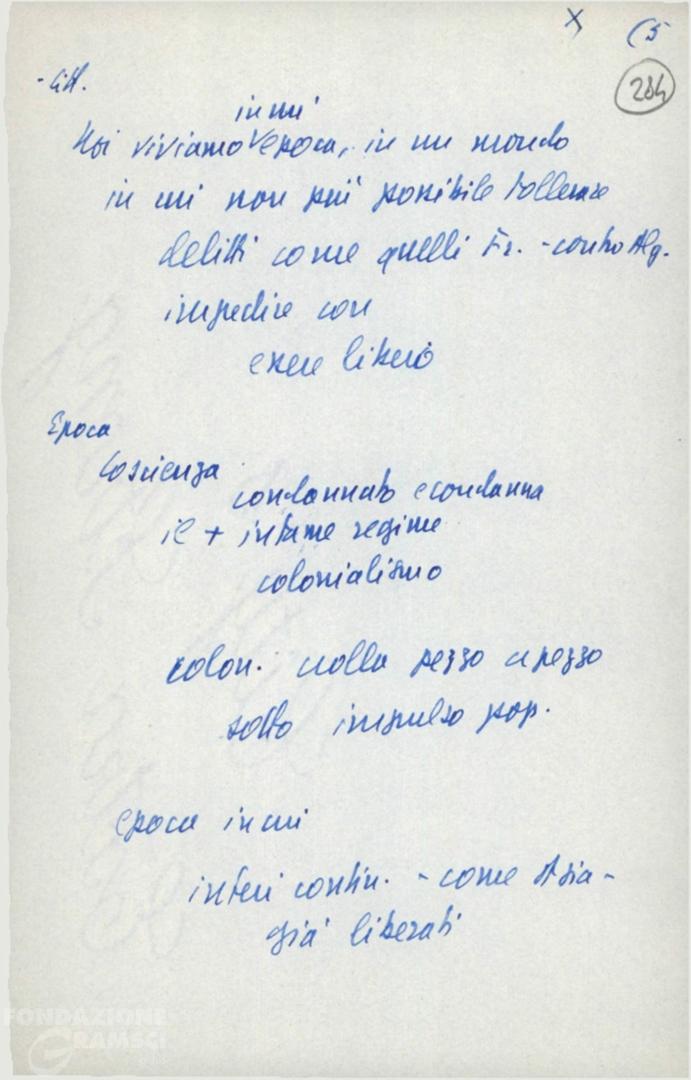 x (5
284
- Citt.
in cui
Noi viviamo epoca, in un mondo
in cui non più possibile tollerare
delitti come quelli Fr. - contro Alg.
impedire con
essere liberò
Epoca
Coscienza
condannato e condanna
il + infame regime
colonialismo
colon. crolla pezzo a pezzo
sotto impulso pop.
epoca in cui
interi contin. - come Asia -
già liberati
FONDAZIONE
GRAMSCI